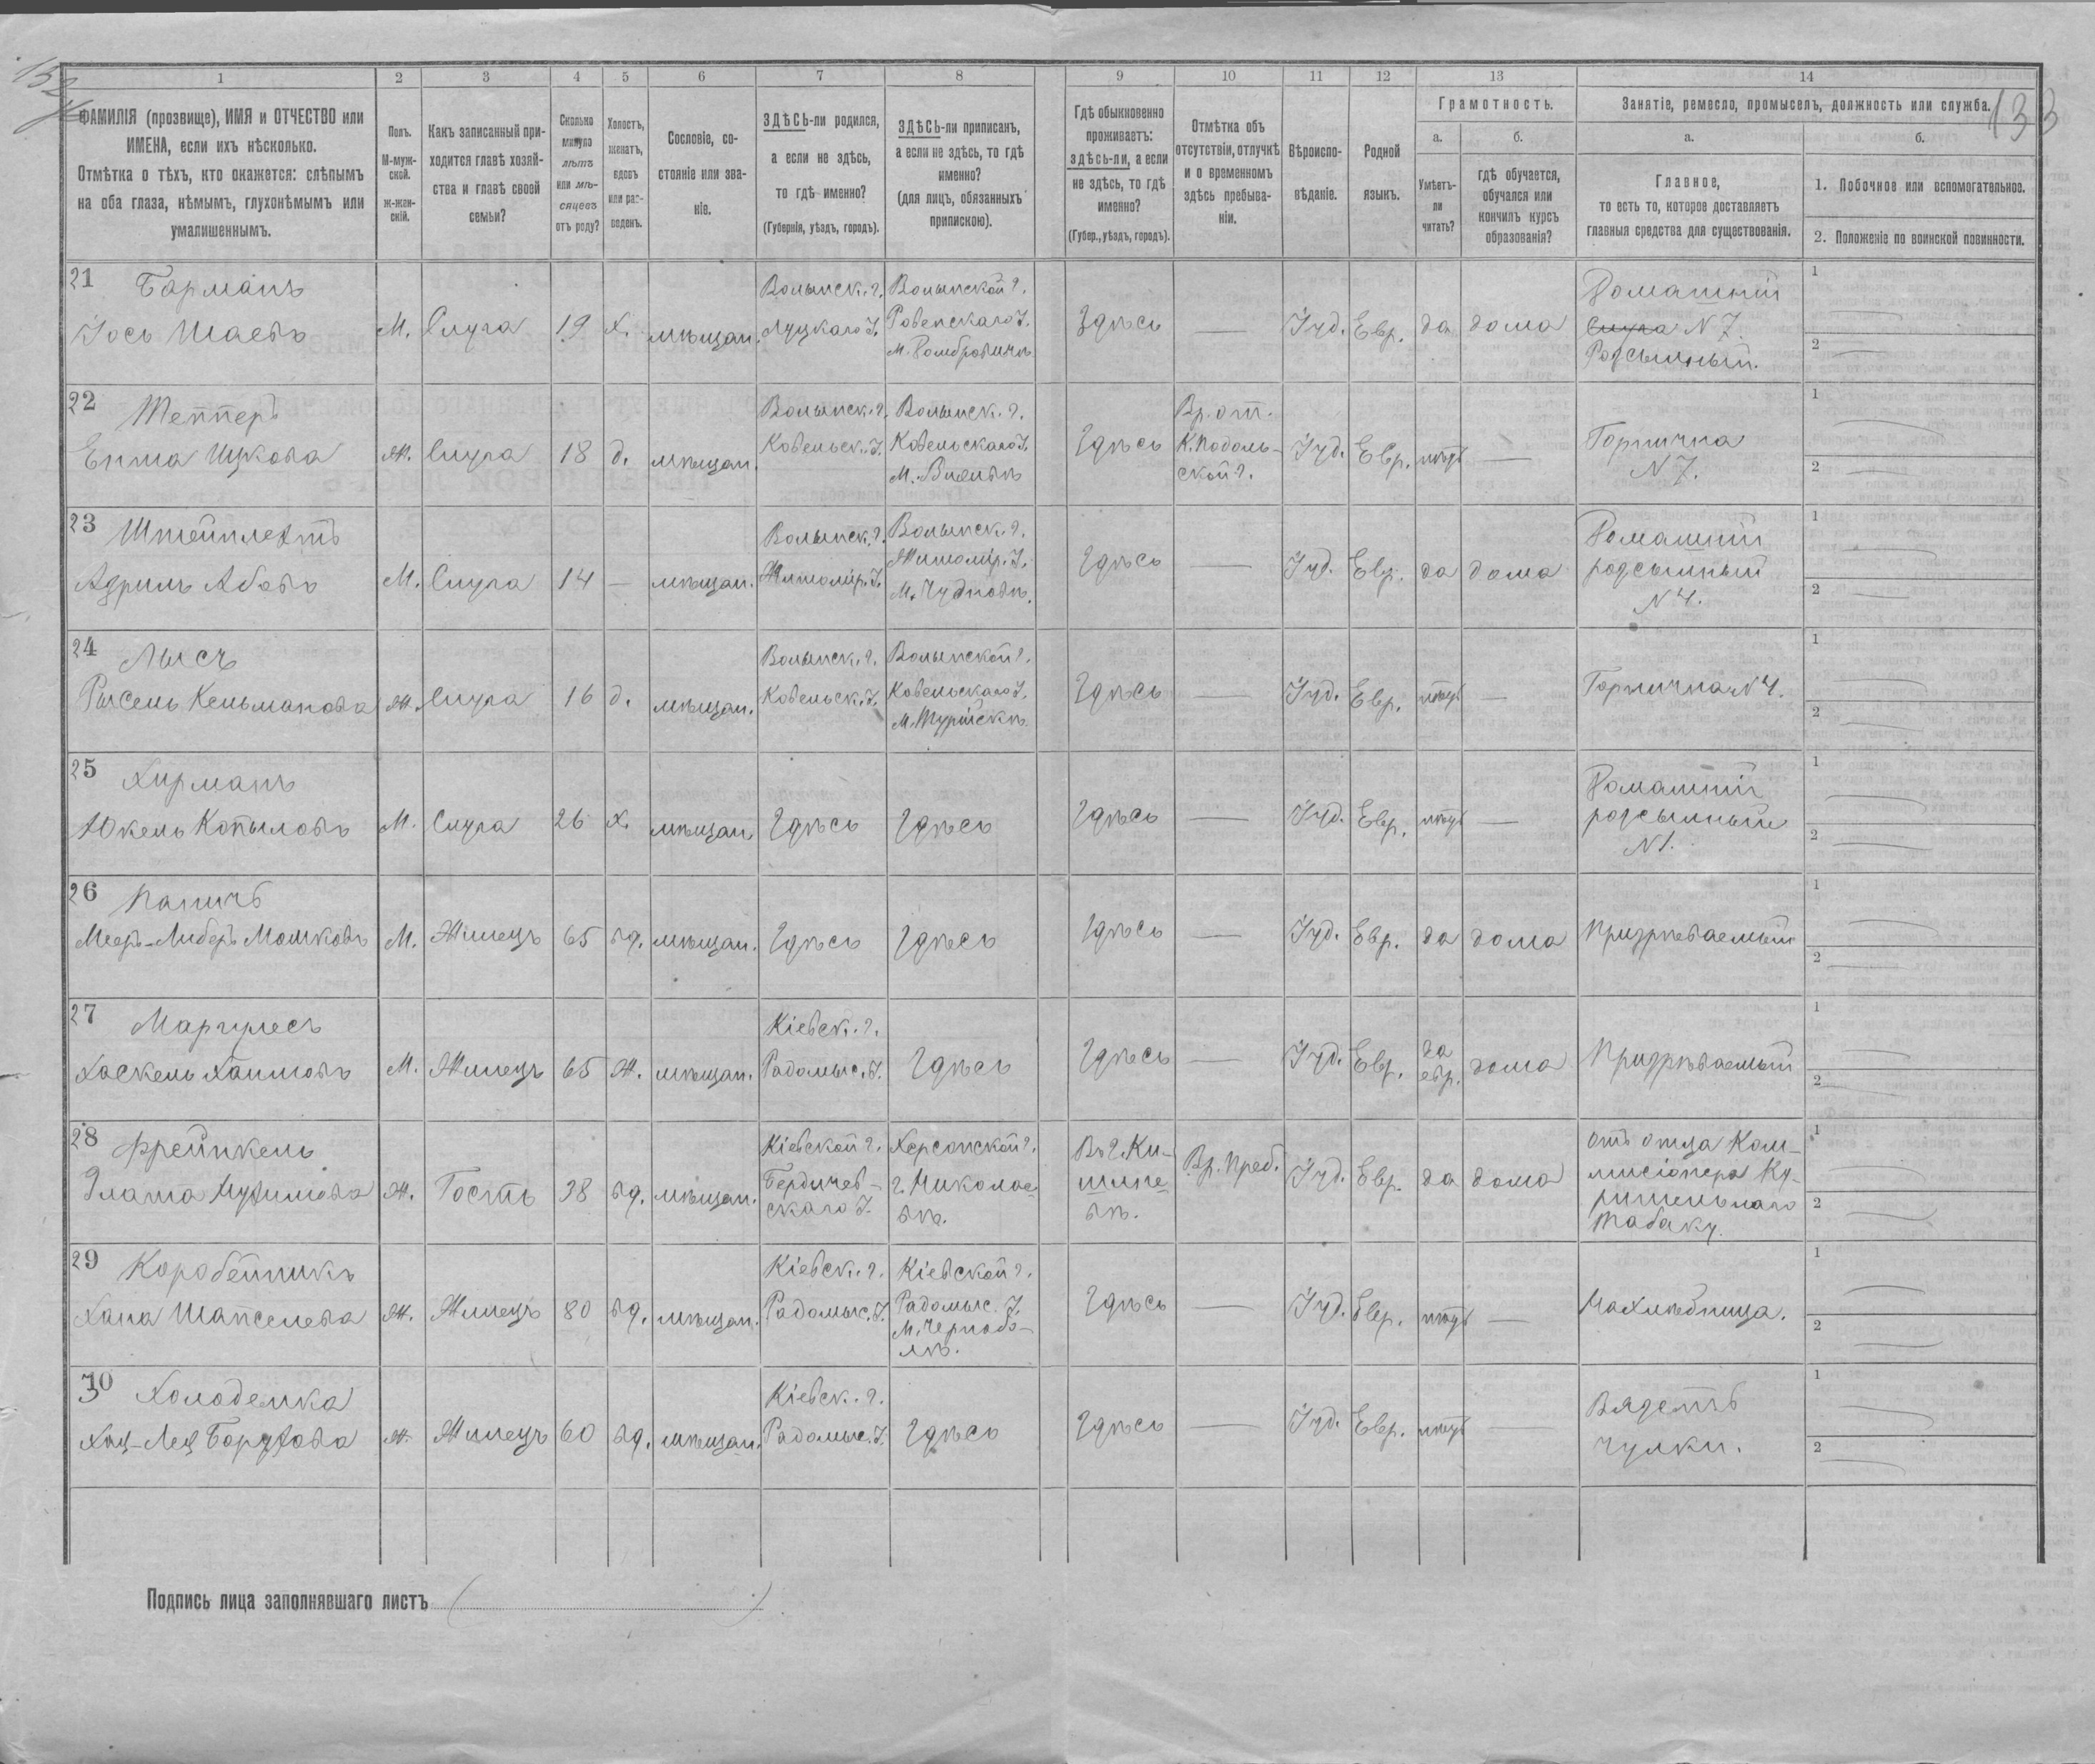 132
133
1 2 3 4 5 6 7 8 9 10 11 12 13 14
ФАМИЛІЯ (прозвище), ИМЯ и ОТЧЕСТВО или
ИМЕНА, если ихъ нѣсколько.
Отмѣтка о тѣхъ, кто окажется: слѣпымъ
на оба глаза, нѣмымъ, глухонѣмымъ или
умалишеннымъ.
Полъ.
М-муж-
ской.
ж-жен-
скій.
Какъ записанный при-
ходится главѣ хозяй-
ства и главѣ своей
семьи?
Сколько
минуло
лѣтъ
или мѣ-
сяцевъ
отъ роду?
Холостъ,
женатъ,
вдовъ
или раз-
веденъ.
Сословіе, со-
стояніе или зва-
ніе.
ЗДѢСЬ-ли родился,
а если не здѣсь,
то гдѣ именно?
(Губернія, уѣздъ, городъ).
ЗДѢСЬ-ли приписанъ,
а если не здѣсь, то гдѣ
именно?
(для лицъ, обязанныхъ
припискою).
Гдѣ обыкновенно
проживаетъ:
здѣсь-ли, а если
не здѣсь, то гдѣ
именно?
(Губер., уѣздъ, городъ).
Отмѣтка объ
отсутствіи, отлучкѣ
и о временномъ
здѣсь пребыва-
ніи.
Вѣроиспо-
вѣданіе.
Родной
языкъ.
Грамотность.
а.
Умѣетъ-
ли
читать?
б.
гдѣ обучается,
обучался или
кончилъ курсъ
образованія?
Занятіе, ремесло, промыселъ, должность или служба.
а.
Главное,
то есть то, которое доставляетъ
главныя средства для существованія.
б.
1. Побочное или вспомогательное.
2. Положеніе по воинской повинности.
21
Барманъ
Іось Шаевъ
М.
Слуга
19
х.
мѣщан.
Волынск. г.
Луцкаго У.
Волынской г.
Ровенскаго У.
м. Домбровичъ
Здѣсь
—
Іуд.
Евр.
да
дома
Домашній
Слуга N 7.
Розсыльный.
1
2
22
Тепперъ
Ента Ицкова
Ж.
Слуга
18
д.
мѣщан.
Волынск. г.
Ковельск. У.
Волынск. г.
Ковельскаго У.
Здѣсь
Вр. от.
К. Подоль-
ской г.
Іуд.
Евр.
нѣтъ
—
Горнична
N 7.
1
2
23
Адриль Абовъ
М.
Слуга
14
—
мѣщан.
Волынск. г.
Житомір. У.
Волынск. г.
Житомір. У.
М. Чудновъ.
Здѣсь
—
Іуд.
Евр.
да
дома
Домашній
розсыльный
N 4.
1
2
24
Лысъ
Рысель Кельманова
Ж.
Слуга
16
д.
мѣщан.
Волынск. г.
Ковельск. У.
Волынской г.
Ковельскаго У.
м. Турійскъ
Здѣсь
—
Іуд.
Евр.
нѣтъ
—
Горнична N 4.
1
2
25
Хирманъ
Юкель Копыловъ
М.
Слуга
26
х.
мѣщан.
Здѣсь
Здѣсь
Здѣсь
—
Іуд.
Евр.
нѣтъ
—
Домашній
розсыльный
N 1.
1
2
26
Паничъ
Мееръ-Либеръ Мошковъ
М.
Жилецъ
65
вд.
мѣщан.
Здѣсь
Здѣсь
Здѣсь
—
Іуд.
Евр.
да
дома
Призрѣваемый
1
2
27
Маргулесъ
Хаскель Хаимовъ
М.
Жилецъ
65
ж.
мѣщан.
Кіевск. г.
Радомыс. У.
Здѣсь
Здѣсь
—
Іуд.
Евр.
да
евр.
дома
Призрѣваемый
1
2
28
Френкель
Злата Нухимова
Ж.
Гость
38
вд.
мѣщан.
Кіевской г.
Бердичев-
скаго У.
Херсонской г.
г. Николае
въ.
Въ г. Ки-
шине
въ.
Вр. преб.
Іуд.
Евр.
да
дома
отъ отца Ком-
мисіонера Ку-
рительнаго
табаку.
1
2
29
Коробейникъ
Хана Шапселева
Ж.
Жилецъ
80
вд.
мѣщан.
Кіевск. г.
Радомыс. У.
Кіевской г.
Радомыс. У.
м. Чернобы-
лѣ.
Здѣсь
—
Іуд.
Евр.
нѣтъ
—
Нахлѣбница.
1
2
30
Холоденка
Хая-Лея Борухова
Ж.
Жилецъ
60
вд.
мѣщан.
Кіевск. г.
Радомыс. У.
Здѣсь
Здѣсь
—
Іуд.
Евр.
нѣтъ
—
Вяжетъ
чулки.
1
2
Подпись лица заполнявшаго листъ